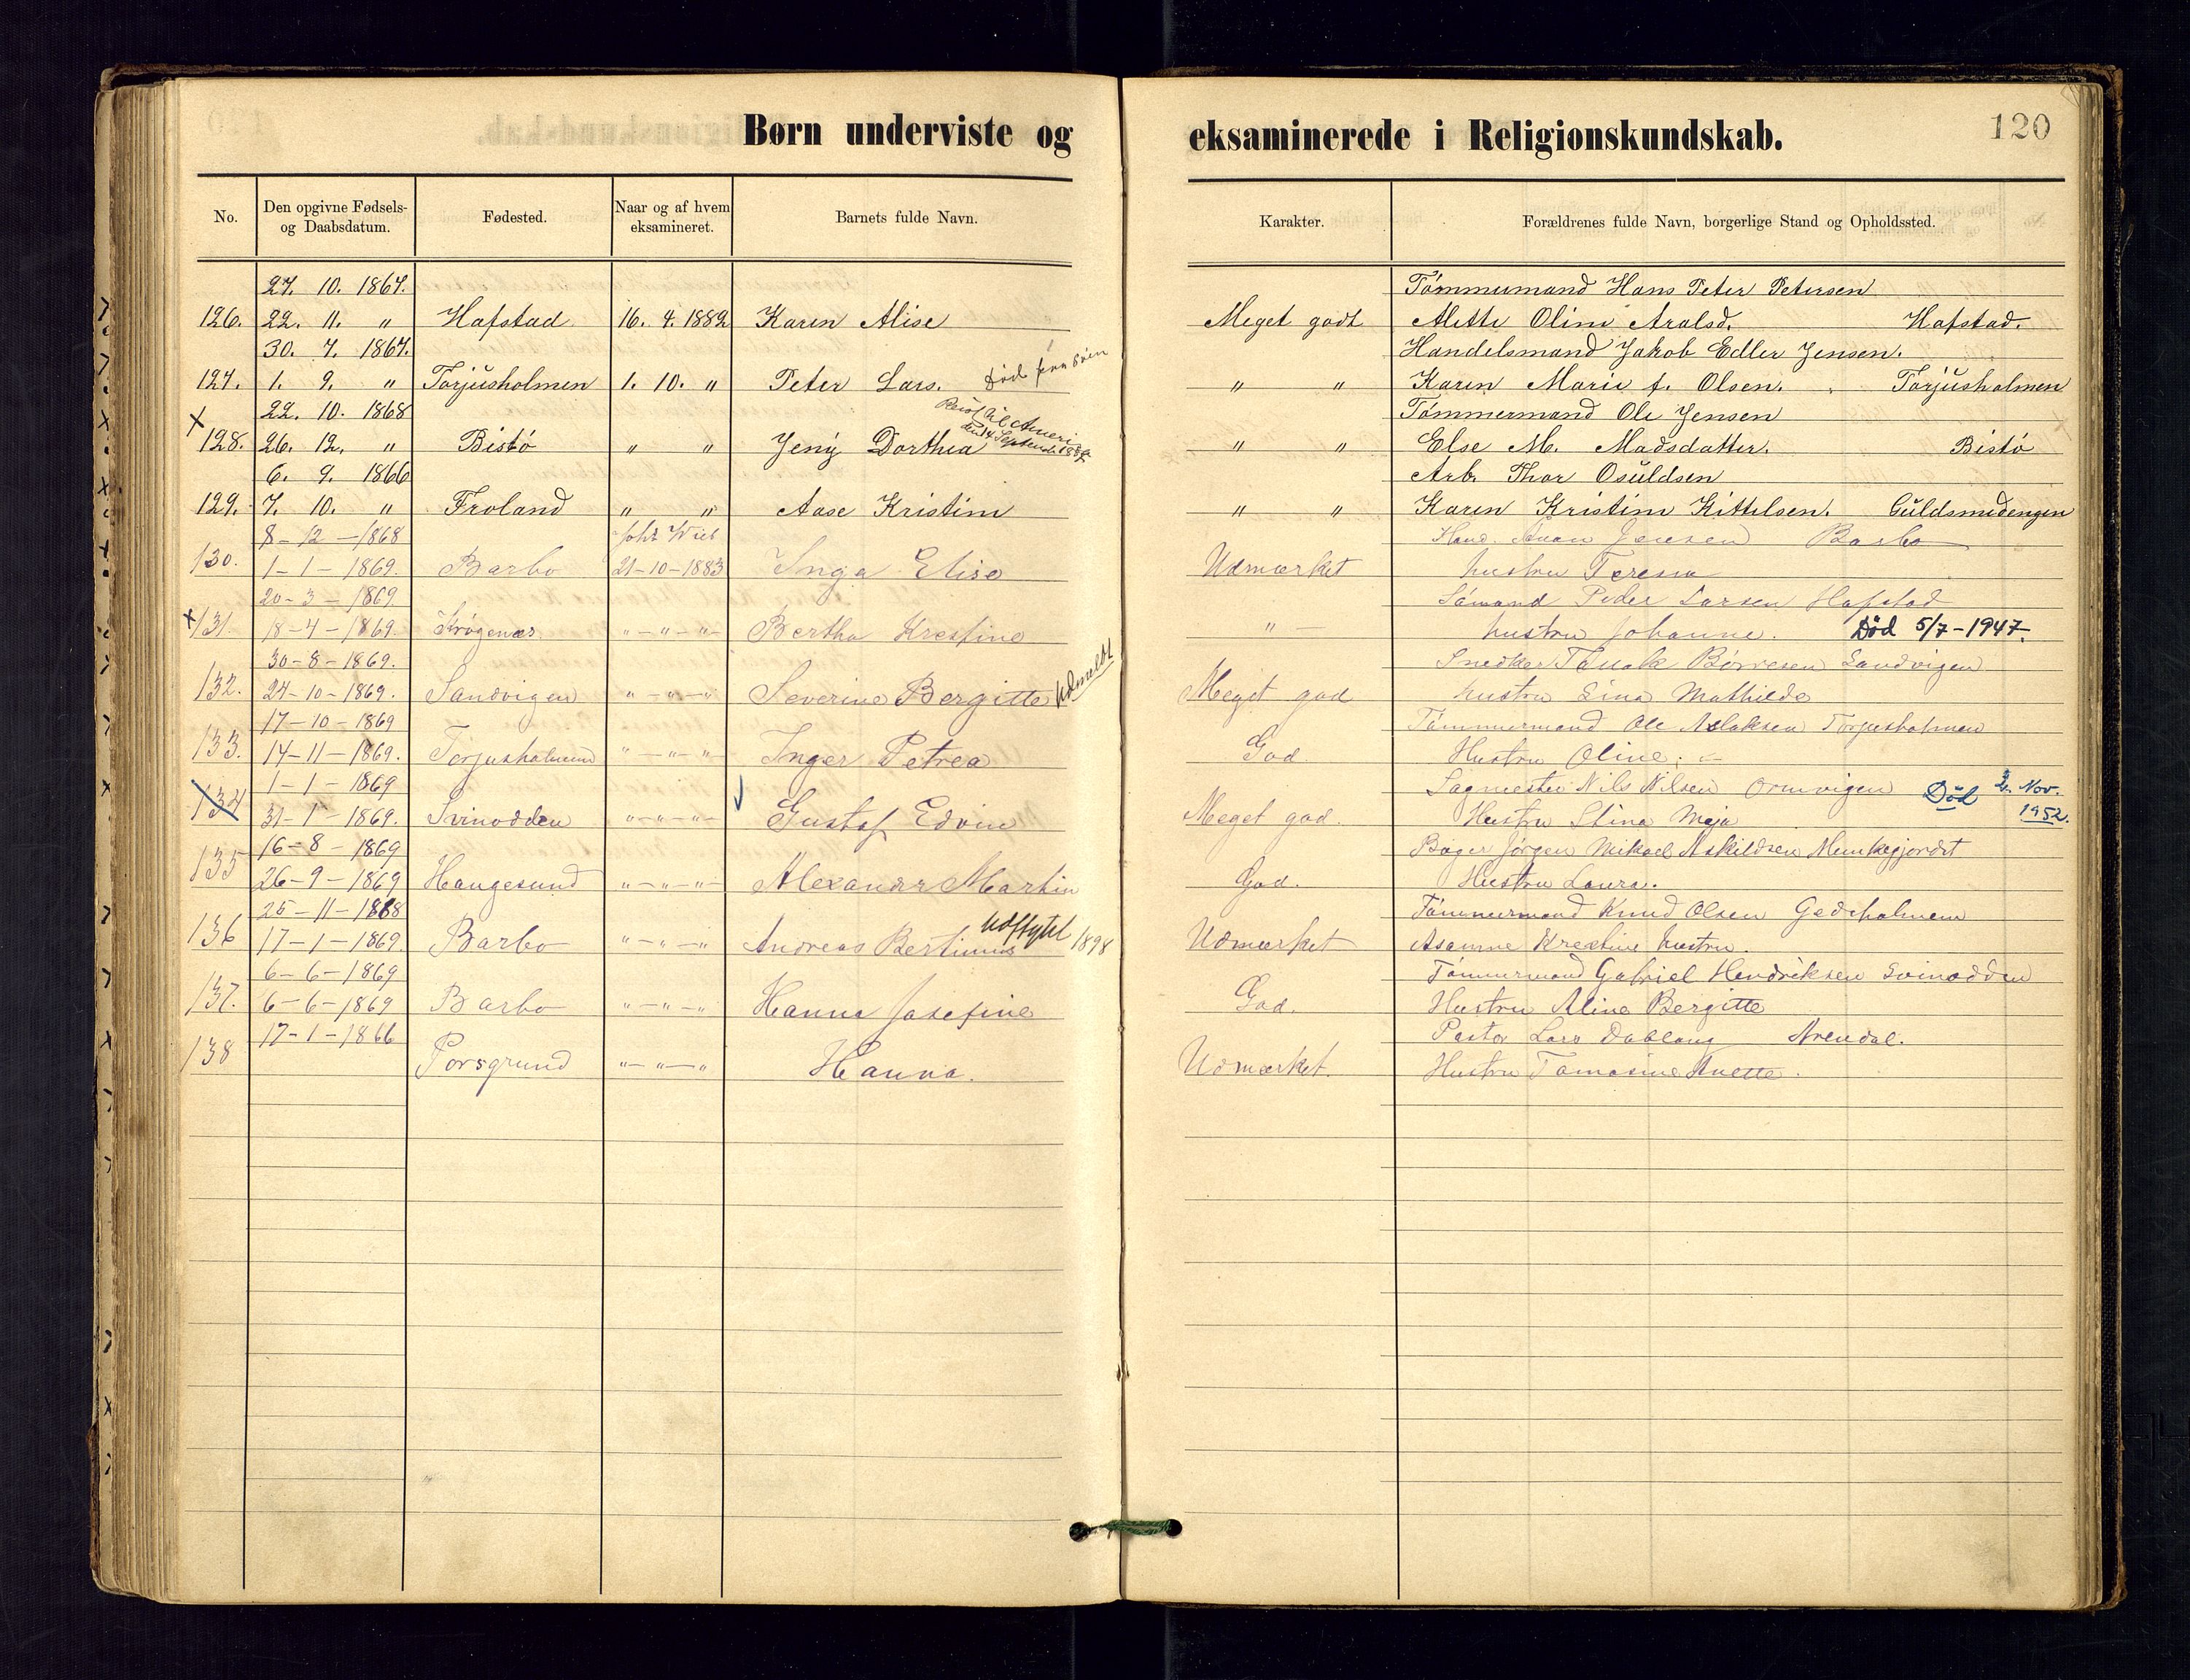 Børn underviste og eksaminerede i Religionskundskab. 120
No. Den opgivne Fødsels- og Daabsdatum. Fødested. Naar og af hvem eksamineret. Barnets fulde Navn. Karakter. Forældrenes fulde Navn, borgerlige Stand og Opholdssted.
27. 10. 1867. Tømmermand Hans Peter Petersen
126. 22. 11. " Hafstad 16. 4. 1882 Karen Alise Meget godt Alette Oline Hafstad.
30. 7. 1867. Handelsmand Jakob Edler Jensen.
127. 1. 9. " Torjusholmen 1. 10. " Peter Lars. Død " " Karen Marie f. Olsen. Torjusholmen
22. 10. 1868 Tømmermand Ole Jensen
x 128. 26. 12. " Bistø " " Jeny Dorthea Reist til Ameri " " Else M. Madsdatter. Bistø
6. 9. 1866 Arb. Thor Osuldsen
129. 7. 10. " Froland " " Aase Kristine " " Karen Kristine Kittilsen. Guldsmedengen
8-12-1868 Jensen Barbo
130. 1-1-1869. Barbo 21-10-1883 Inga Elise Udmærket hustru Teresia
20-3-1869. Sømand Peder Larsen Hafstad
x 131. 18-4-1869. Krøgenæs "-"-" Bertha Krestine "- hustru Johanne. Død 5/7-1947.
30-8-1869. Snedker Børresen Sandvigen
132. 24-10-1869. Sandvigen "-"-" Severine Bergitte Udmeldt Meget god hustru Lina Mathilde
17-10-1869 Tømmermand Ole Aslaksen Torjusholmen
133. 14-11-1869. Torjusholmen "-"-" Inger Petrea God Hustru Oline.
1-1-1869 Sagmester Nils Nilsen Ormvigen Død 2. Nov. 1952.
134 31-1-1869. Svinodden "-"-" Gustaf Edvin Meget god. Hustru Stina Maja
16-8-1869 Bager Jørgen Mikael Askildsen Munkegjordet
135 26-9-1869 Haugesund "-"-" Alexander Martin God. Hustru Laura.
25-11-1868 Tømmermand Knud Olsen Gedeholmen
136 17-1-1869 Barbo "-"-" Andreas Bertinius Udflyttet 1898 Udmærket Asamine Krestine hustru.
6-6-1869 Tømmermand Gabriel Hendriksen Svinodden
137. 6-6-1869 Barbo "-"-" Hanna Josefine God. Hustru Aline Bergitte
17-1-1866 Pastor Lars Dahlang Arendal.
138 Porsgrund "-"-" Hanna. Udmærket. Hustru Tomasine Anette.